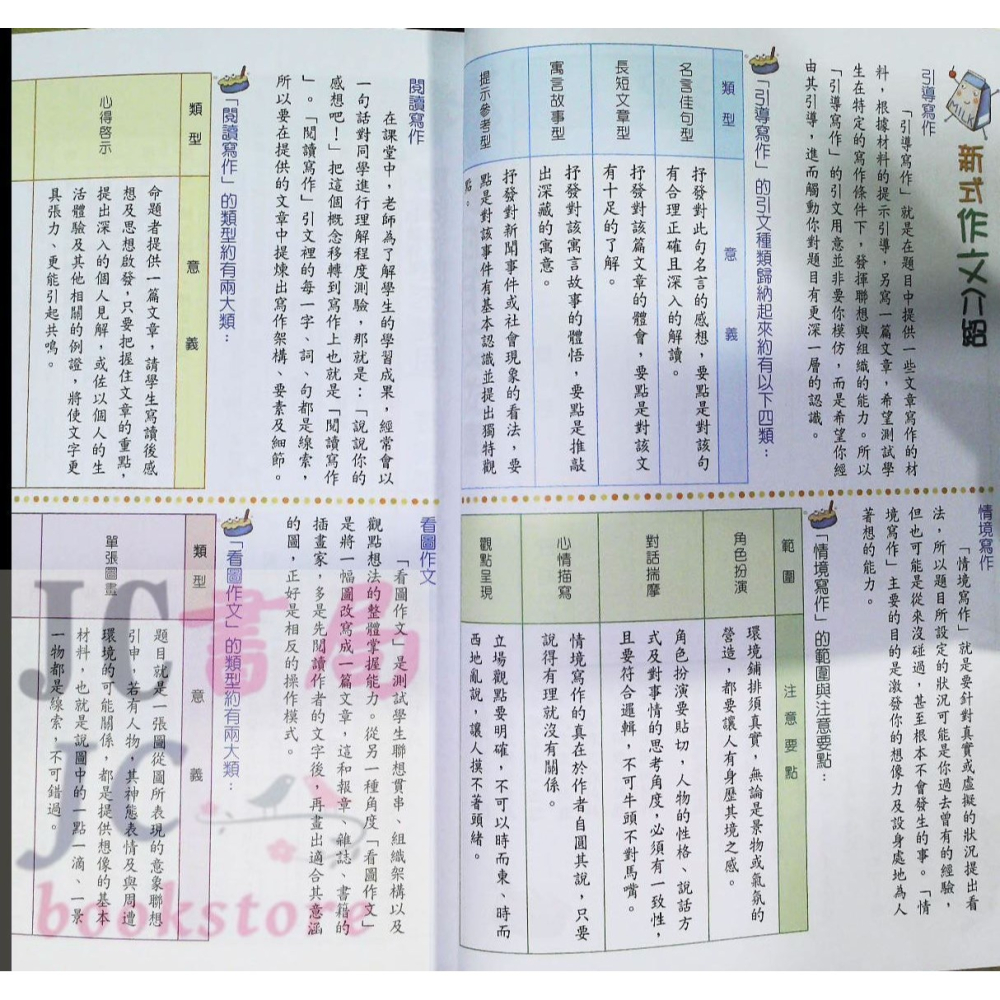 MILK
新式作文介紹
引導寫作
「引導寫作」就是在題目中提供一些文章寫作的材
料，根據材料的提示引導，另寫一篇文章，希望測試學
生在特定的寫作條件下，發揮聯想與組織的能力。所以
「引導寫作」的引文用意並非要你模仿，而是希望你經
由其引導，進而觸動你對題目有更深一層的認識。
「引導寫作」的引文種類歸納起來約有以下四類：
類型
意義
名言佳句型
抒發對此句名言的感想，要點是對該句
有合理正確且深入的解讀。
長短文章型
抒發對該篇文章的體會，要點是對該文
有十足的了解。
寓言故事型
抒發對該寓言故事的體悟，要點是推敲
出深藏的寓意。
提示參考型
抒發對新聞事件或社會現象的看法，要
點是對該事件有基本認識並提出獨特觀
點。
情境寫作
「情境寫作」就是要針對真實或虛擬的狀況提出看
法，所以題目所設定的狀況可能是你過去曾有的經驗，
但也可能是從來沒碰過，甚至根本不會發生的事。「情
境寫作」主要的目的是激發你的想像力及設身處地為人
著想的能力。
「情境寫作」的範圍與注意要點：
範圍
注意要點
角色扮演
環境鋪排須真實，無論是景物或氣氛的
營造，都要讓人有身歷其境之感。
對話揣摩
角色扮演要貼切，人物的性格、說話方
式及對事情的思考角度，必須有一致性，
且要符合邏輯，不可牛頭不對馬嘴。
心情描寫
情境寫作的真在於作者自圓其說，只要
說得有理就沒有關係。
觀點呈現
立場觀點要明確，不可以時而東、時而
西地亂說，讓人摸不著頭緒。
閱讀寫作
在課堂中，老師為了解學生的學習成果，經常會以
一句話對同學進行理解程度測驗，那就是：「說說你的
感想吧！」把這個概念移轉到寫作上也就是「閱讀寫作
」。「閱讀寫作」引文裡的每一字、詞、句都是線索，
所以要在提供的文章中提煉出寫作架構、要素及細節。
「閱讀寫作」的類型約有兩大類：
類型
意義
心得啓示
命題者提供一篇文章，請學生寫讀後感
想及思想啟發，只要把握住文章的重點，
提出深入的個人見解，或佐以個人的生
活體驗及其他相關的例證，將使文字更
具張力、更能引起共鳴。
看圖作文
「看圖作文」是測試學生聯想貫串、組織架構以及
觀點想法的整體掌握能力。從另一種角度「看圖作文」
是將一幅圖改寫成一篇文章，這和報章、雜誌、書籍的
插畫家，多是先閱讀作者的文字後，再畫出適合其意涵
的圖，正好是相反的操作模式。
「看圖作文」的類型約有兩大類：
類型
意義
單張圖畫
題目就是一張圖從圖所表現的意象聯想
引申，若有人物，其神態表情及與周遭
環境的可能關係，都是提供想像的基本
材料，也就是說圖中的一點一滴、一景
一物都是線索，不可錯過。
JC書局
JC
bookstore